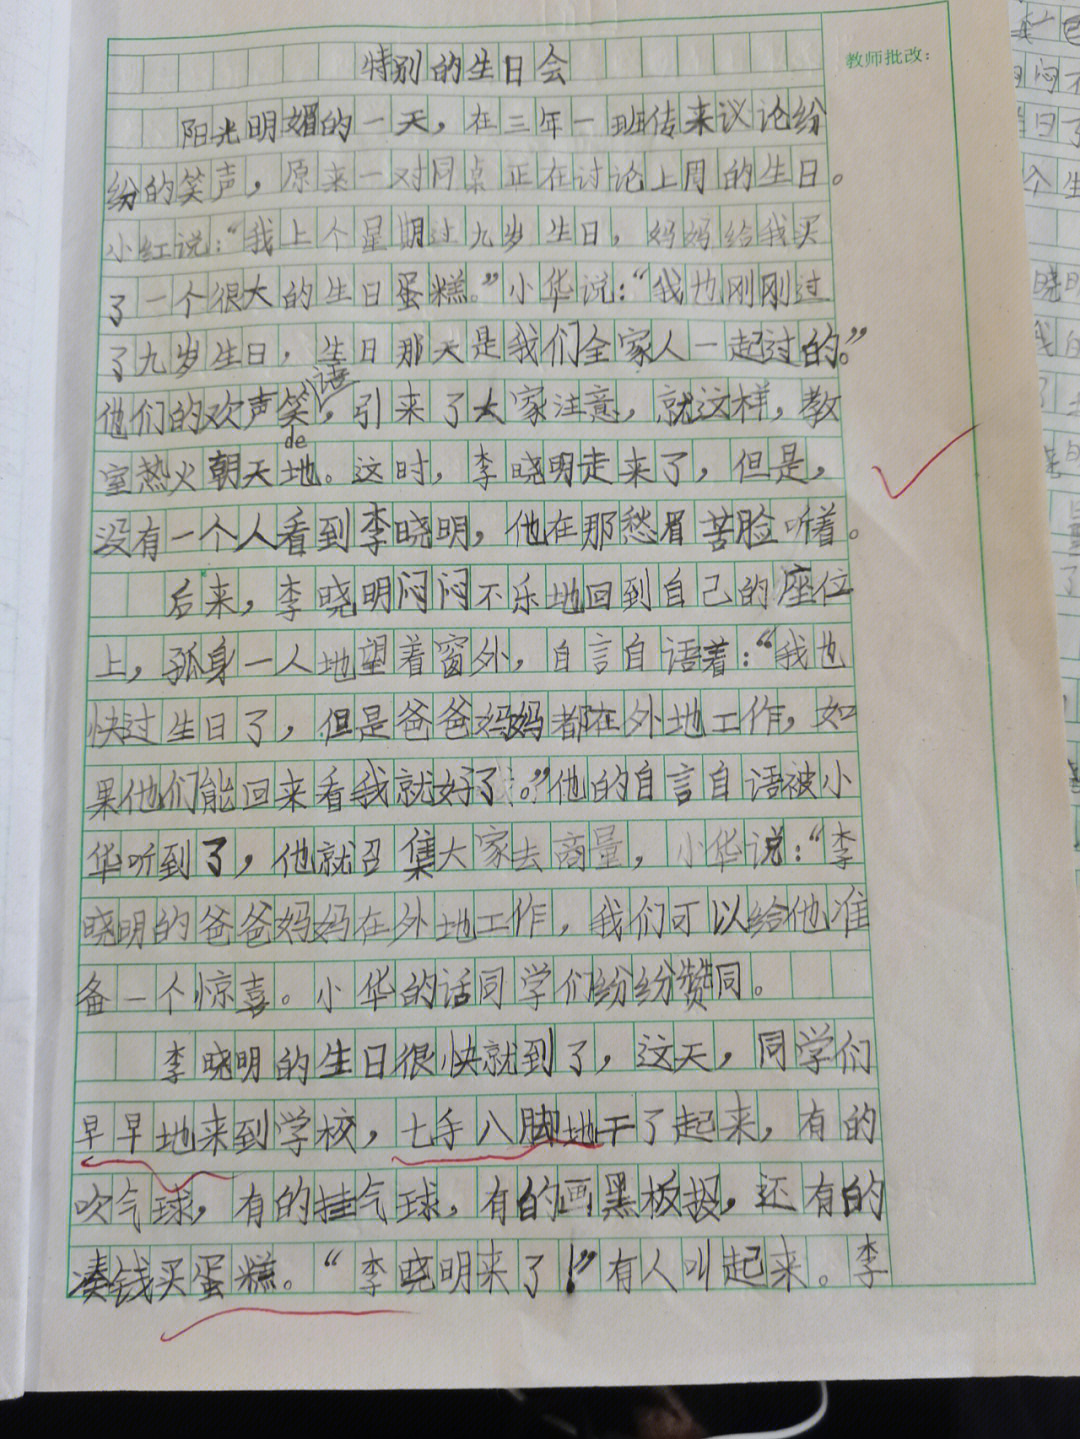 特别的生日会
教师批改：
阳光明媚的一天，在三年一班传来议论纷
纷的笑声，原来一对同桌正在讨论上周的生日。
小红说：“我上个星期过九岁生日，妈妈给我买
了一个很大的生日蛋糕。”小华说：“我也刚刚过
了九岁生日，生日那天是我们全家人一起过的。”
他们的欢声笑语，引来了大家注意，就这样，教
de
室热火朝天地。这时，李晓明走来了，但是，
没有一个人看到李晓明，他在那愁眉苦脸听着。
后来，李晓明闷闷不乐地回到自己的座位
上，孤身一人地望着窗外，自言自语着：“我也
快过生日了，但是爸爸妈妈都在外地工作，如
果他们能回来看我就好了。”他的自言自语被小
华听到了，他就召集大家去商量，小华说：“李
晓明的爸爸妈妈在外地工作，我们可以给他准
备一个惊喜。小华的话同学们纷纷赞同。
李晓明的生日很快就到了，这天，同学们
早早地来到学校，七手八脚地干了起来，有的
吹气球，有的挂气球，有的画黑板报，还有的
凑钱买蛋糕。“李晓明来了！”有人叫起来。李